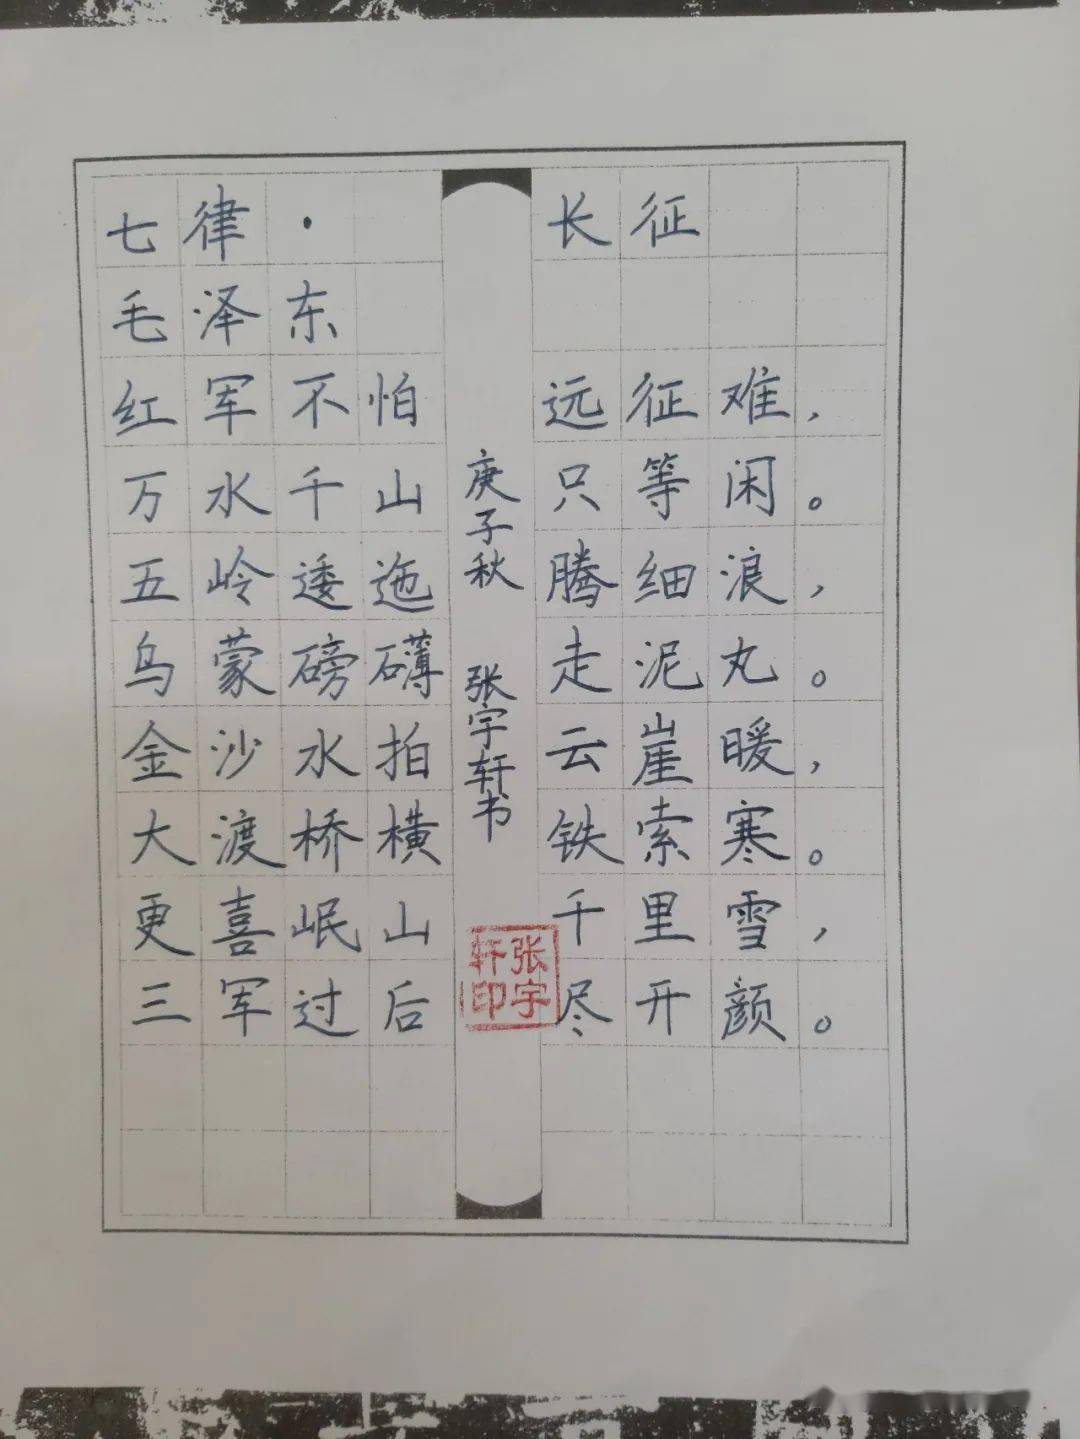 七律·长征
毛泽东
红军不怕远征难，
万水千山只等闲。
五岭逶迤腾细浪，
乌蒙磅礴走泥丸。
金沙水拍云崖暖，
大渡桥横铁索寒。
更喜岷山千里雪，
三军过后尽开颜。
庚子秋 张宇轩书
张宇轩印